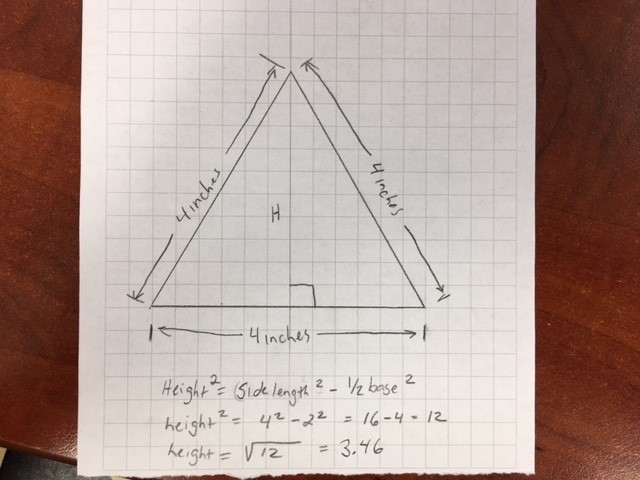 4 inches
4 inches
H
4 inches
Height² = (Side length² - 1/2 base²
height² = 4² - 2² = 16 - 4 = 12
height = √12 = 3.46